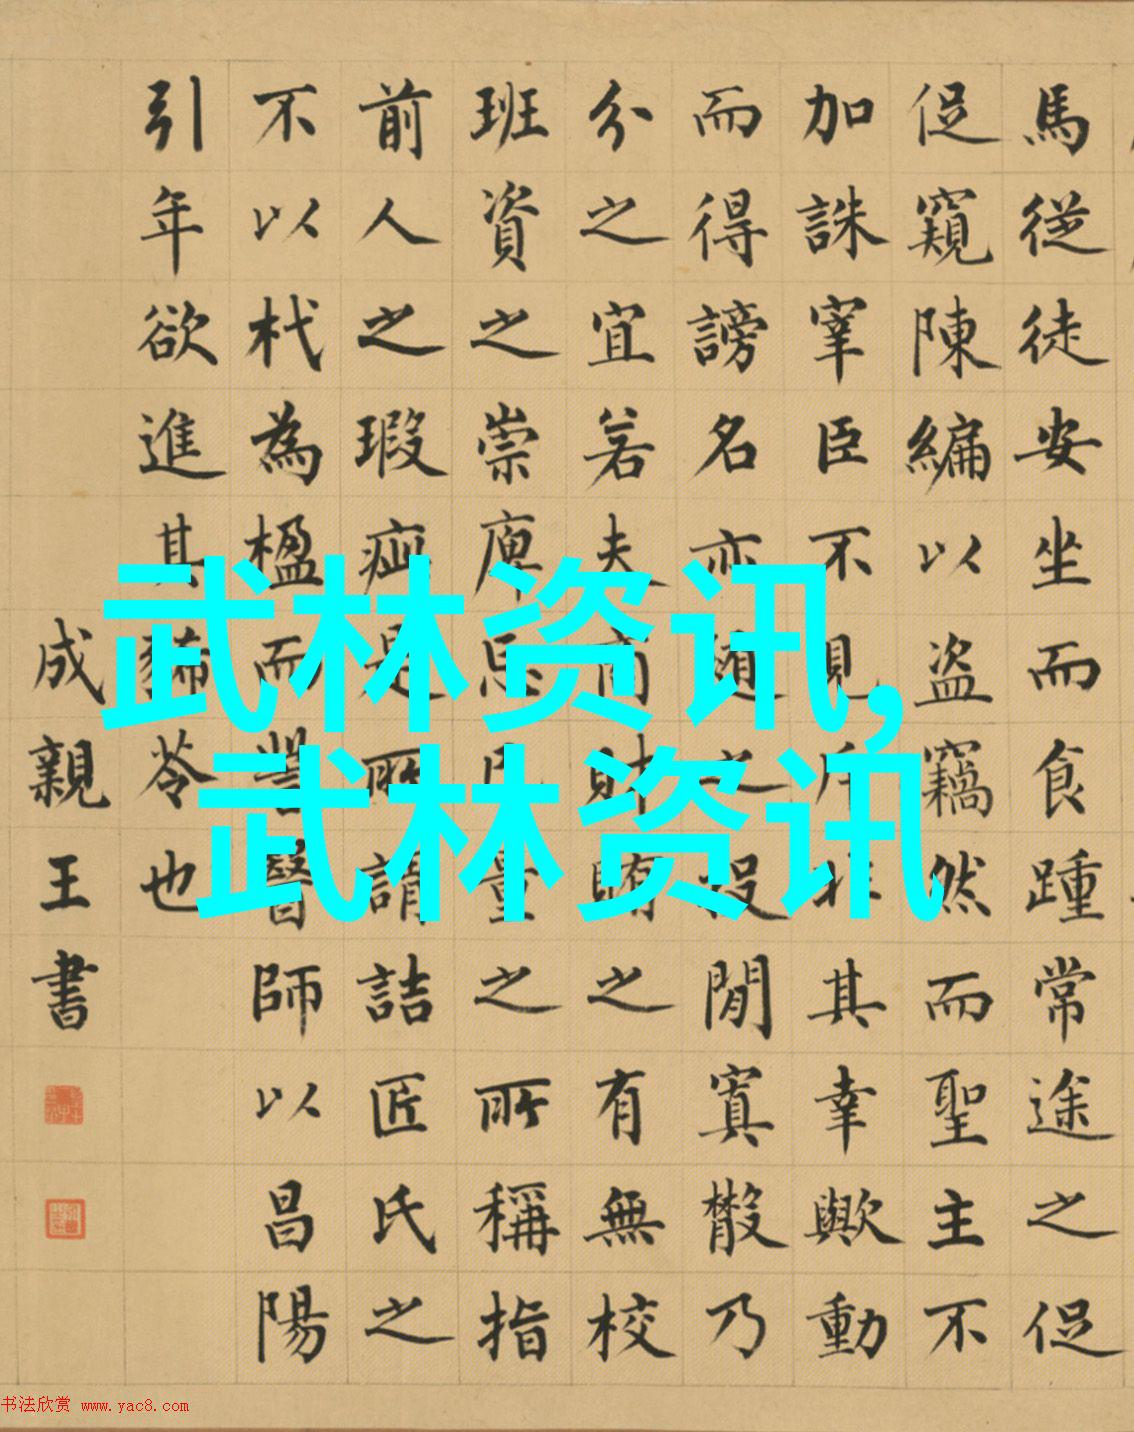 馬從徒安坐而食踵常途之促
促窺陳編以盜竊然而聖主不
加誅宰臣不見斥非其幸歟動
而得謗名亦隨之投閒寘散乃
分之宜若夫商財賄之有無校
班資之崇庳忘己量之所稱指
前人之瑕疵是所謂詰匠氏之
不以杙為楹而訾醫師以昌陽
引年欲進其豨苓也
成親王書
武林资讯,
武林资讯
书法欣赏 www.yac8.com